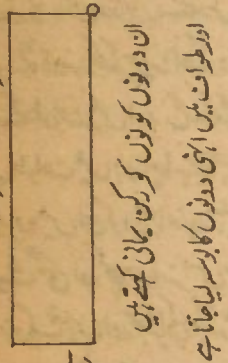 ان دونوں کونوں کو رکن یمانی کہتے ہیں
اور طواف میں انہی دونوں کا بوسہ لیا جاتا ہے